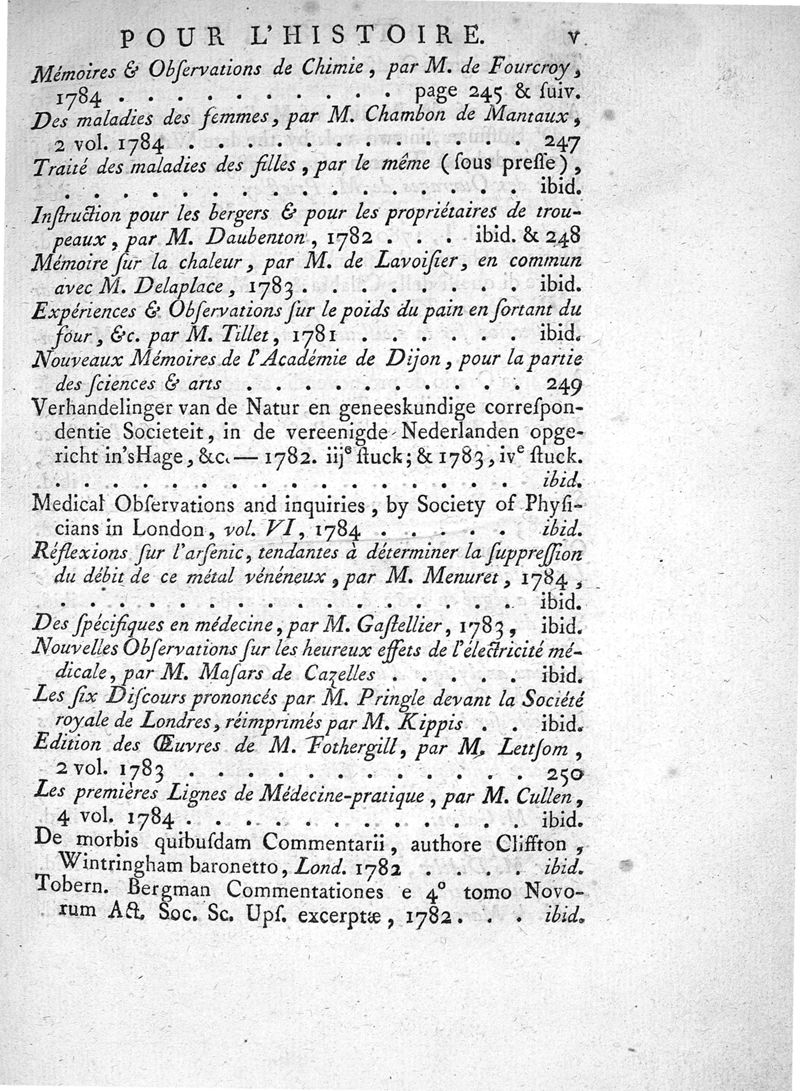 POUR L'HISTOIRE. v
Mémoires & Obſervations de Chimie, par M. de Fourcroy,
1784 . . . . . . . . . . page 245 & ſuiv.
Des maladies des femmes, par M. Chambon de Mantaux,
2 vol. 1784 . . . . . . . . . . . . . 247
Traité des maladies des filles, par le même (ſous preſſe),
. . . . . . . . . . . . . . . . ibid.
Inſtruction pour les bergers & pour les propriétaires de trou-
peaux, par M. Daubenton, 1782 . . . ibid. & 248
Mémoire ſur la chaleur, par M. de Lavoiſier, en commun
avec M. Delaplace, 1783 . . . . . . . . ibid.
Expériences & Obſervations ſur le poids du pain en ſortant du
four, &c. par M. Tillet, 1781 . . . . . . ibid.
Nouveaux Mémoires de l'Académie de Dijon, pour la partie
des ſciences & arts . . . . . . . . . . 249
Verhandelinger van de Natur en geneeskundige correſpon-
dentie Societeit, in de vereenigde Nederlanden opge-
richt in'sHage, &c. — 1782. iije ſtuck; & 1783, ive ſtuck.
. . . . . . . . . . . . . . . . . ibid.
Medical Obſervations and inquiries, by Society of Phyſi-
cians in London, vol. VI, 1784 . . . . . ibid.
Réflexions ſur l'arſenic, tendantes à déterminer la ſuppreſſion
du débit de ce métal vénéneux, par M. Menuret, 1784,
. . . . . . . . . . . . . . . . ibid.
Des ſpécifiques en médecine, par M. Gaſtellier, 1783, ibid.
Nouvelles Obſervations ſur les heureux effets de l'électricité mé-
dicale, par M. Maſars de Cazelles . . . . . ibid.
Les ſix Diſcours prononcés par M. Pringle devant la Société
royale de Londres, réimprimés par M. Kippis . . ibid.
Edition des Œuvres de M. Fothergill, par M. Lettſom,
2 vol. 1783 . . . . . . . . . . . . 250
Les premières Lignes de Médecine-pratique, par M. Cullen,
4 vol. 1784 . . . . . . . . . . . . ibid.
De morbis quibuſdam Commentarii, authore Cliffton,
Wintringham baronetto, Lond. 1782 . . . . ibid.
Tobern. Bergman Commentationes e 4° tomo Novo-
rum Act. Soc. Sc. Upſ. excerptæ, 1782. . . ibid.